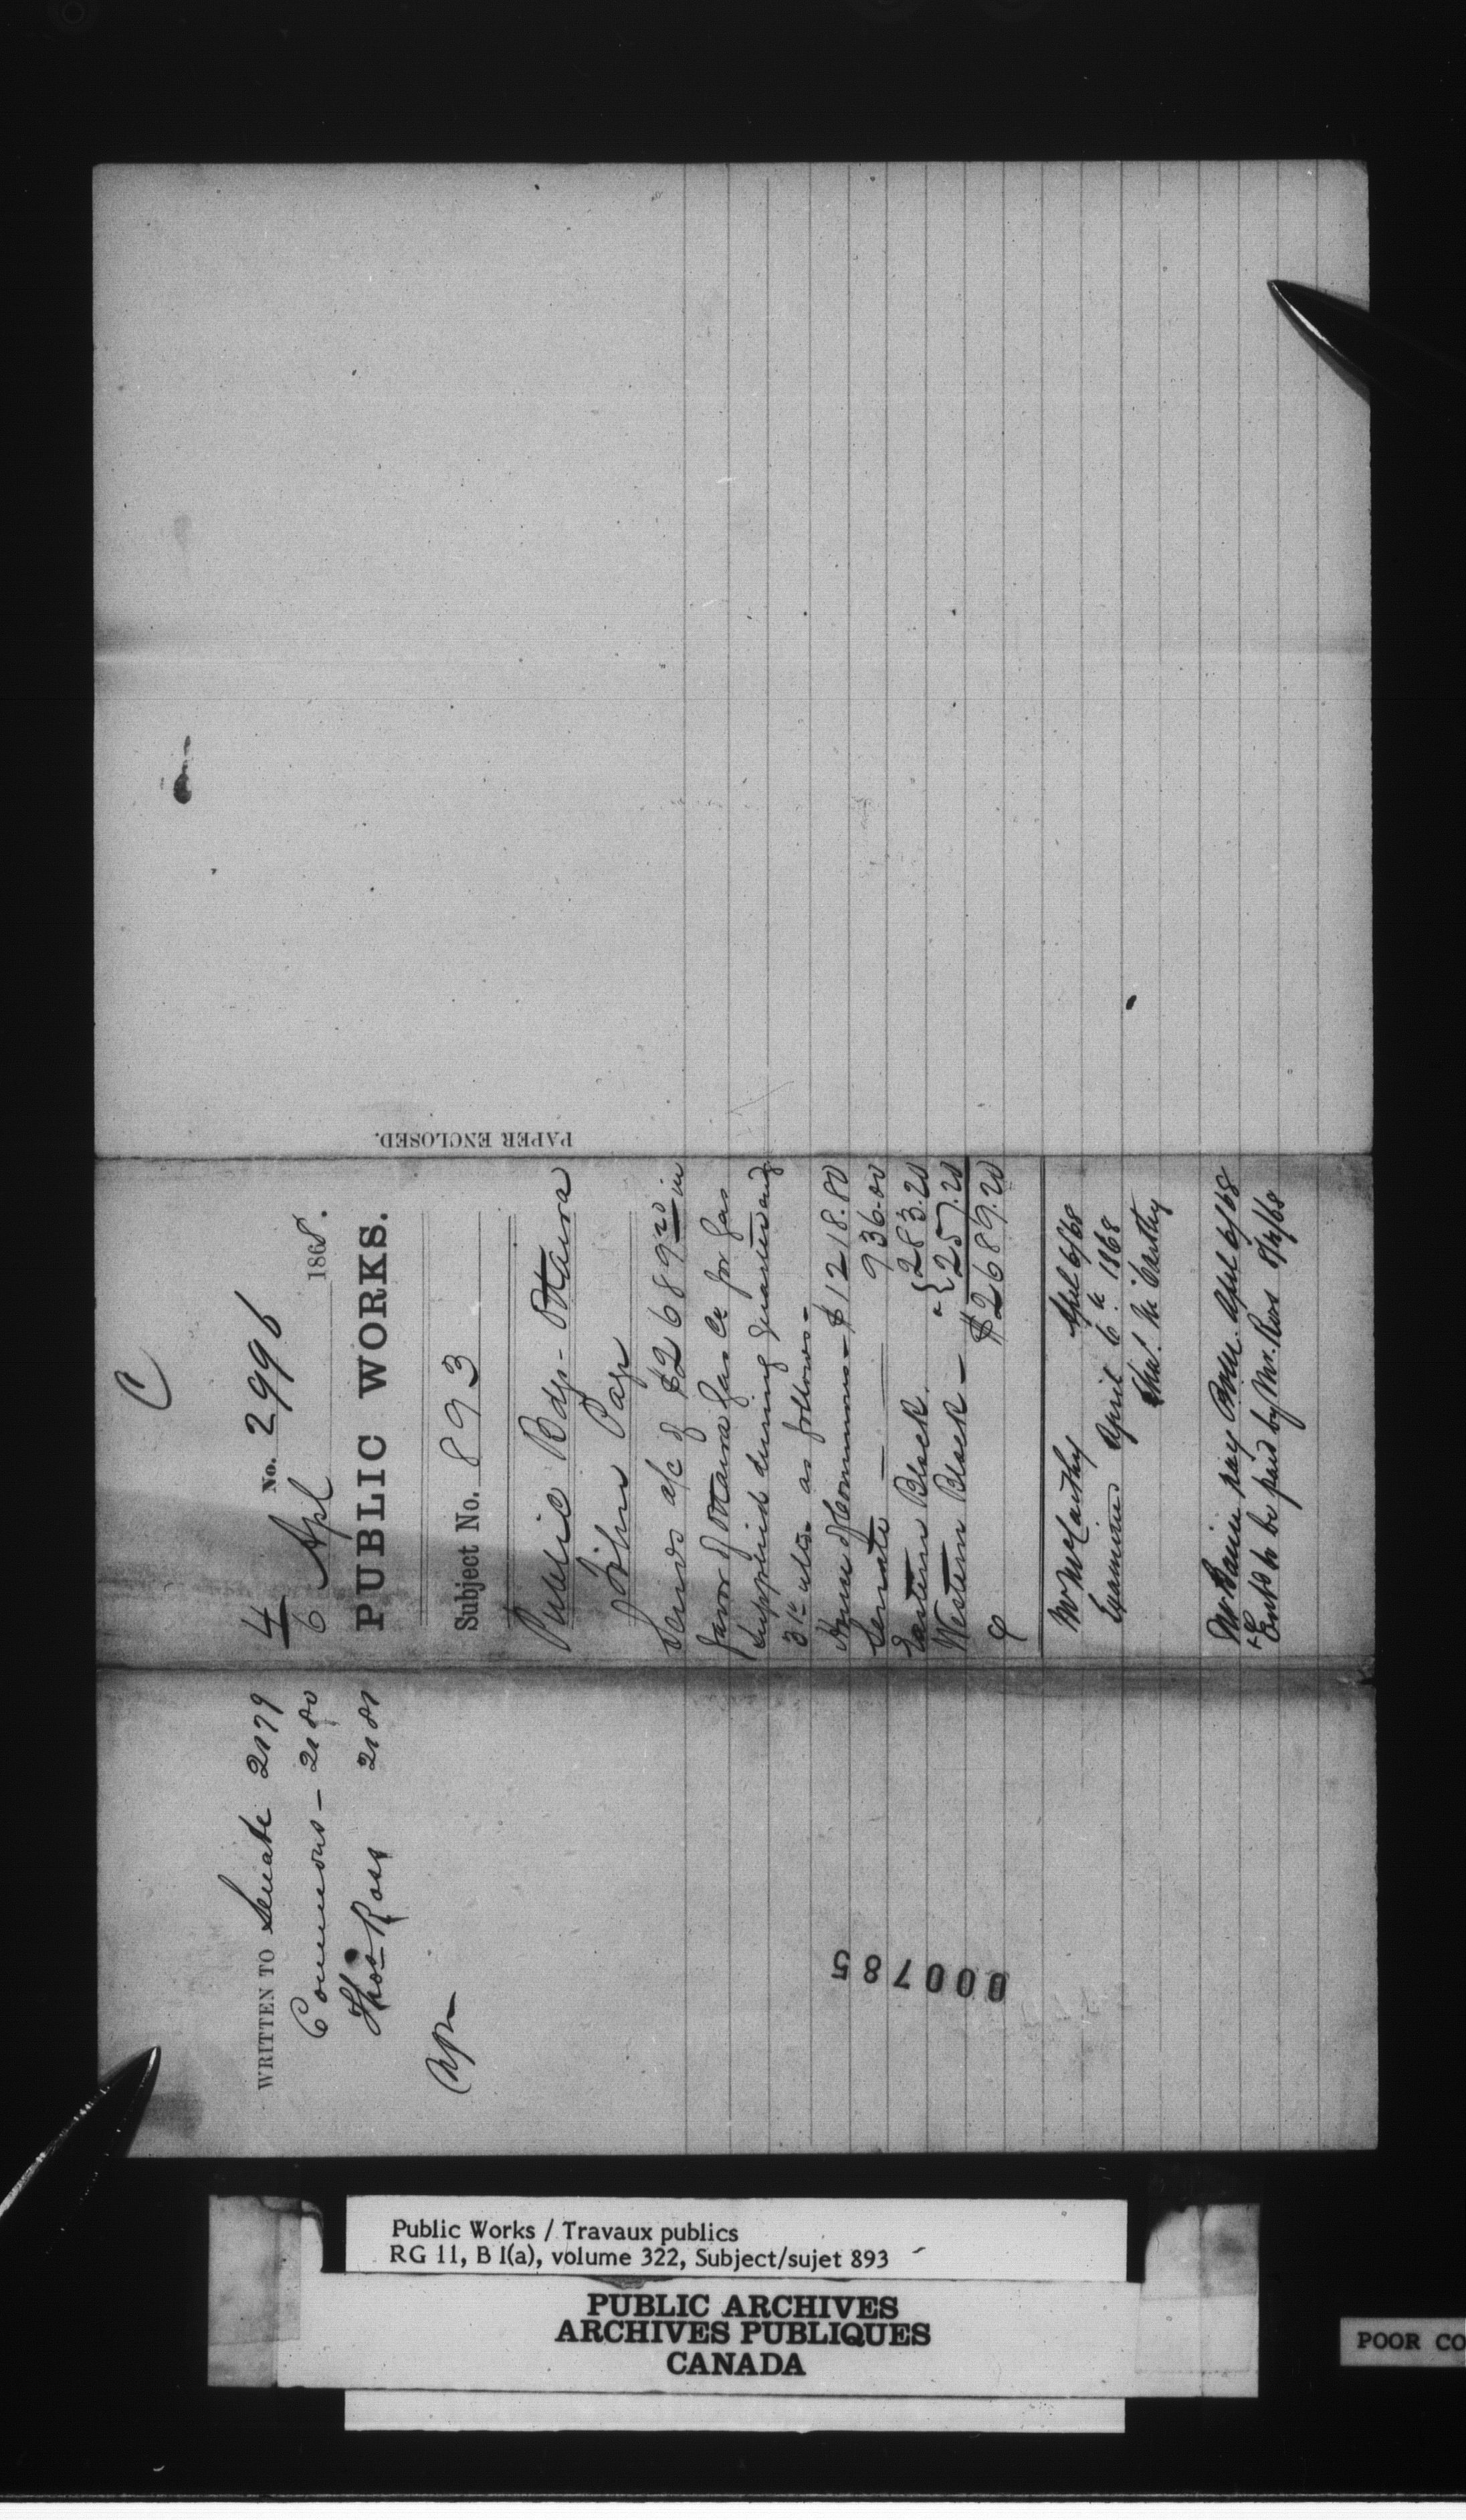 C
4
6 Apl
No. 2996
1868.
PUBLIC WORKS.
Subject No. 893
Public Bdgs - Ottawa
John Page
Sends a/c of $2689.20 in
favor of Ottawa Gas Co for Gas
supplied during quarter endg
31st ulto. as follows -
House of Commons - $1218.80
Senate — 936.00
Eastern Block {283.20
Western Block - {257.20
$2689.20
Mr McCarthy April 6/68
Examined April 6th 1868
McCarthy
pay April 6/68
to be paid by Mr. Ross
PAPER ENCLOSED.
WRITTEN TO Senate 2179
Commons - 2180
Thos Ross 2181
000785
Public Works / Travaux publics
RG 11, B 1(a), volume 322, Subject/sujet 893
PUBLIC ARCHIVES
ARCHIVES PUBLIQUES
CANADA
POOR CO